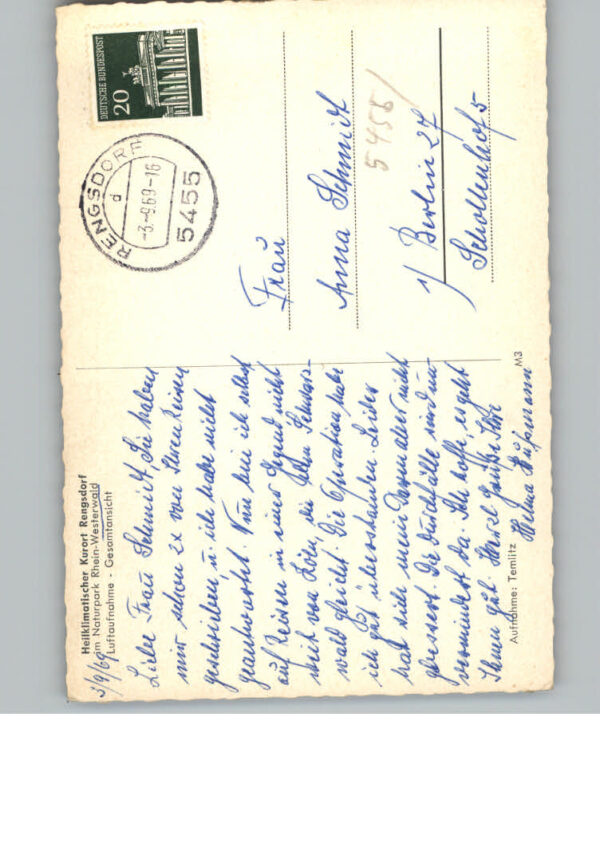 Heilklimatischer Kurort Rengsdorf
im Naturpark Rhein-Westerwald
Luftaufnahme - Gesamtansicht
3/9/69
Liebe Frau Schmidt, Sie haben
mir schon 2x von Ihren Reisen
geschrieben u. ich habe nicht
geantwortet. Nun bin ich selbst
auf Reisen in einer Gegend nicht
weit von Köln, die dem Schwarz-
wald gleicht. Die Operation habe
ich gut überstanden. Leider
hat sich mein Darm aber nicht
gebessert. Die Durchfälle sind un-
vermindert da. Ich hoffe, es geht
Ihnen gut. Herzl. Grüße Ihre
Helma
Aufnahme: Temlitz
M3
DEUTSCHE BUNDESPOST
20
RENGSDORF
d
-3.-9.69-16
5455
Frau
Anna Schmidt
5455/
1/ Berlin 27
Schollenhof 5